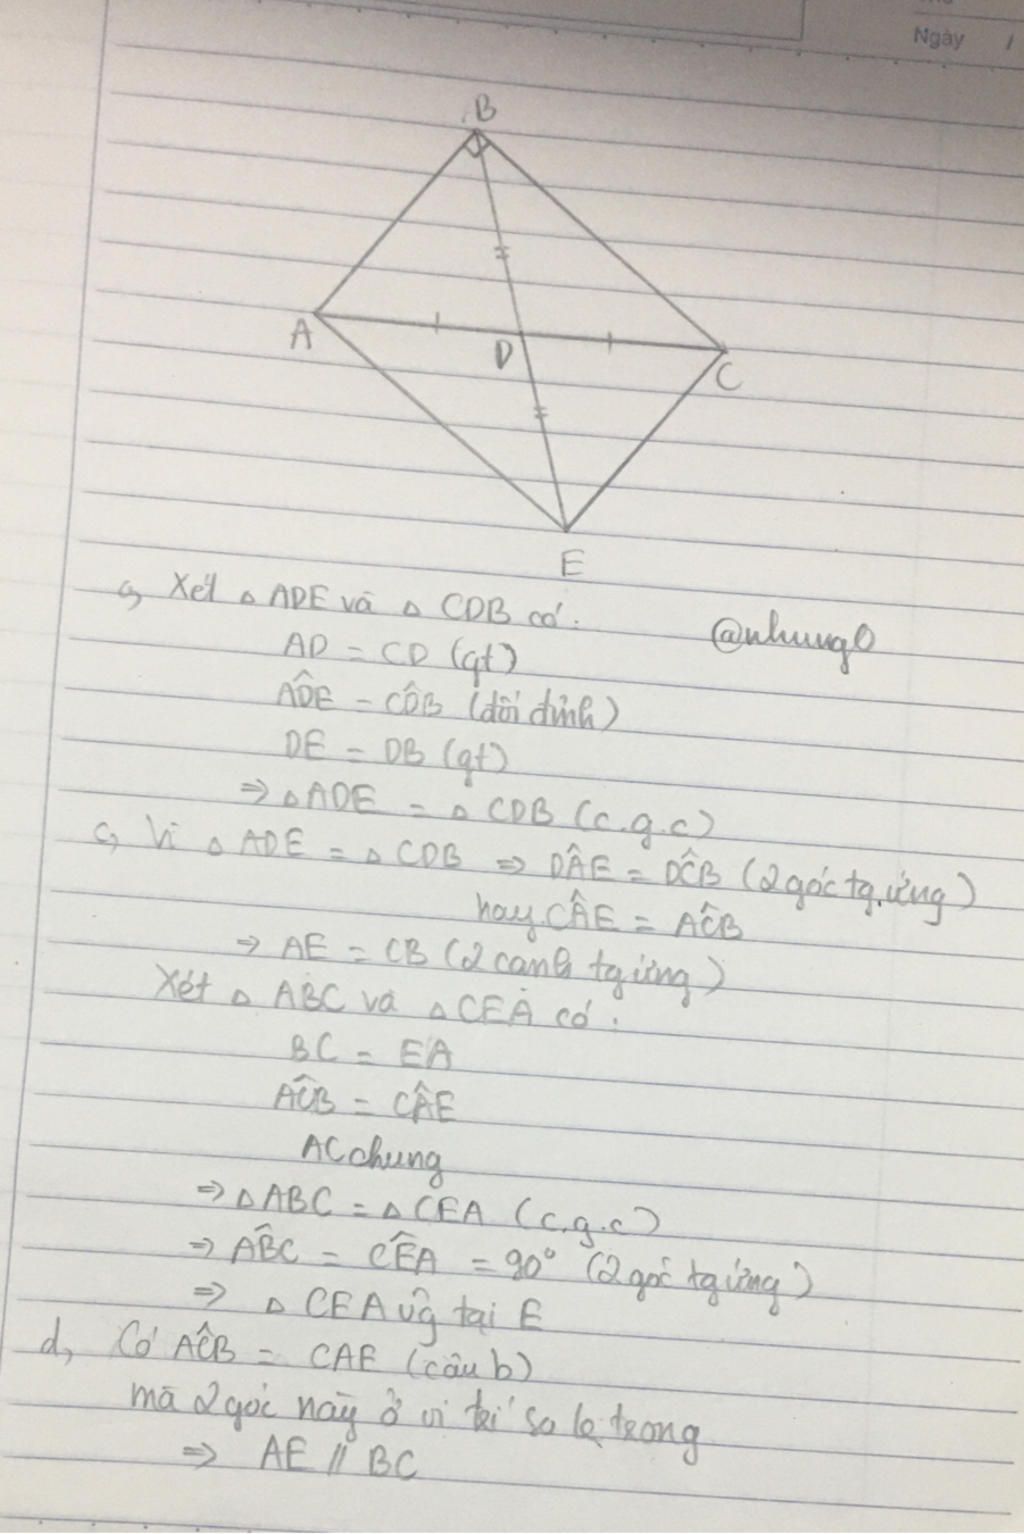 Ngày /
B
A
D
C
E
a, Xét △ ADE và △ CDB có:
@nhung0
AD = CD (gt)
ADÊ = CDB̂ (đối đỉnh)
DE = DB (gt)
⇒ △ ADE = △ CDB (c.g.c)
c, Vì △ ADE = △ CDB ⇒ DÂE = DĈB (2 góc tg.ứng)
hay CÂE = AĈB
⇒ AE = CB (2 cạnh tg ứng)
Xét △ ABC và △ CEA có:
BC = EA
AĈB = CÂE
AC chung
⇒ △ ABC = △ CEA (c.g.c)
⇒ AB̂C = CÊA = 90° (2 góc tg ứng)
⇒ △ CEA vĝ tại E
d, Có AĈB = CAE (câu b)
mà 2 góc này ở vị trí so le trong
⇒ AE // BC